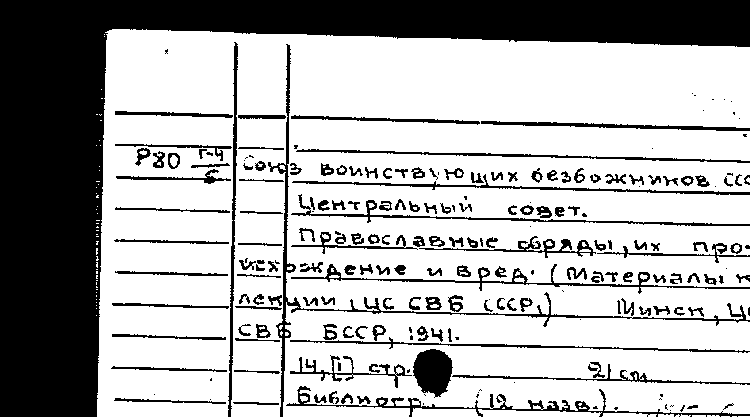 Р80 Г-4/6 Союз воинствующих безбожников ССС
Центральный совет.
Православные обряды, их про-
исхождение и вред. (Материалы к
лекции, ЦС СВБ СССР,) Минск, ЦС
СВБ БССР, 1941.
14, [1] стр. 21 см
Библиогр. (12 назв.).